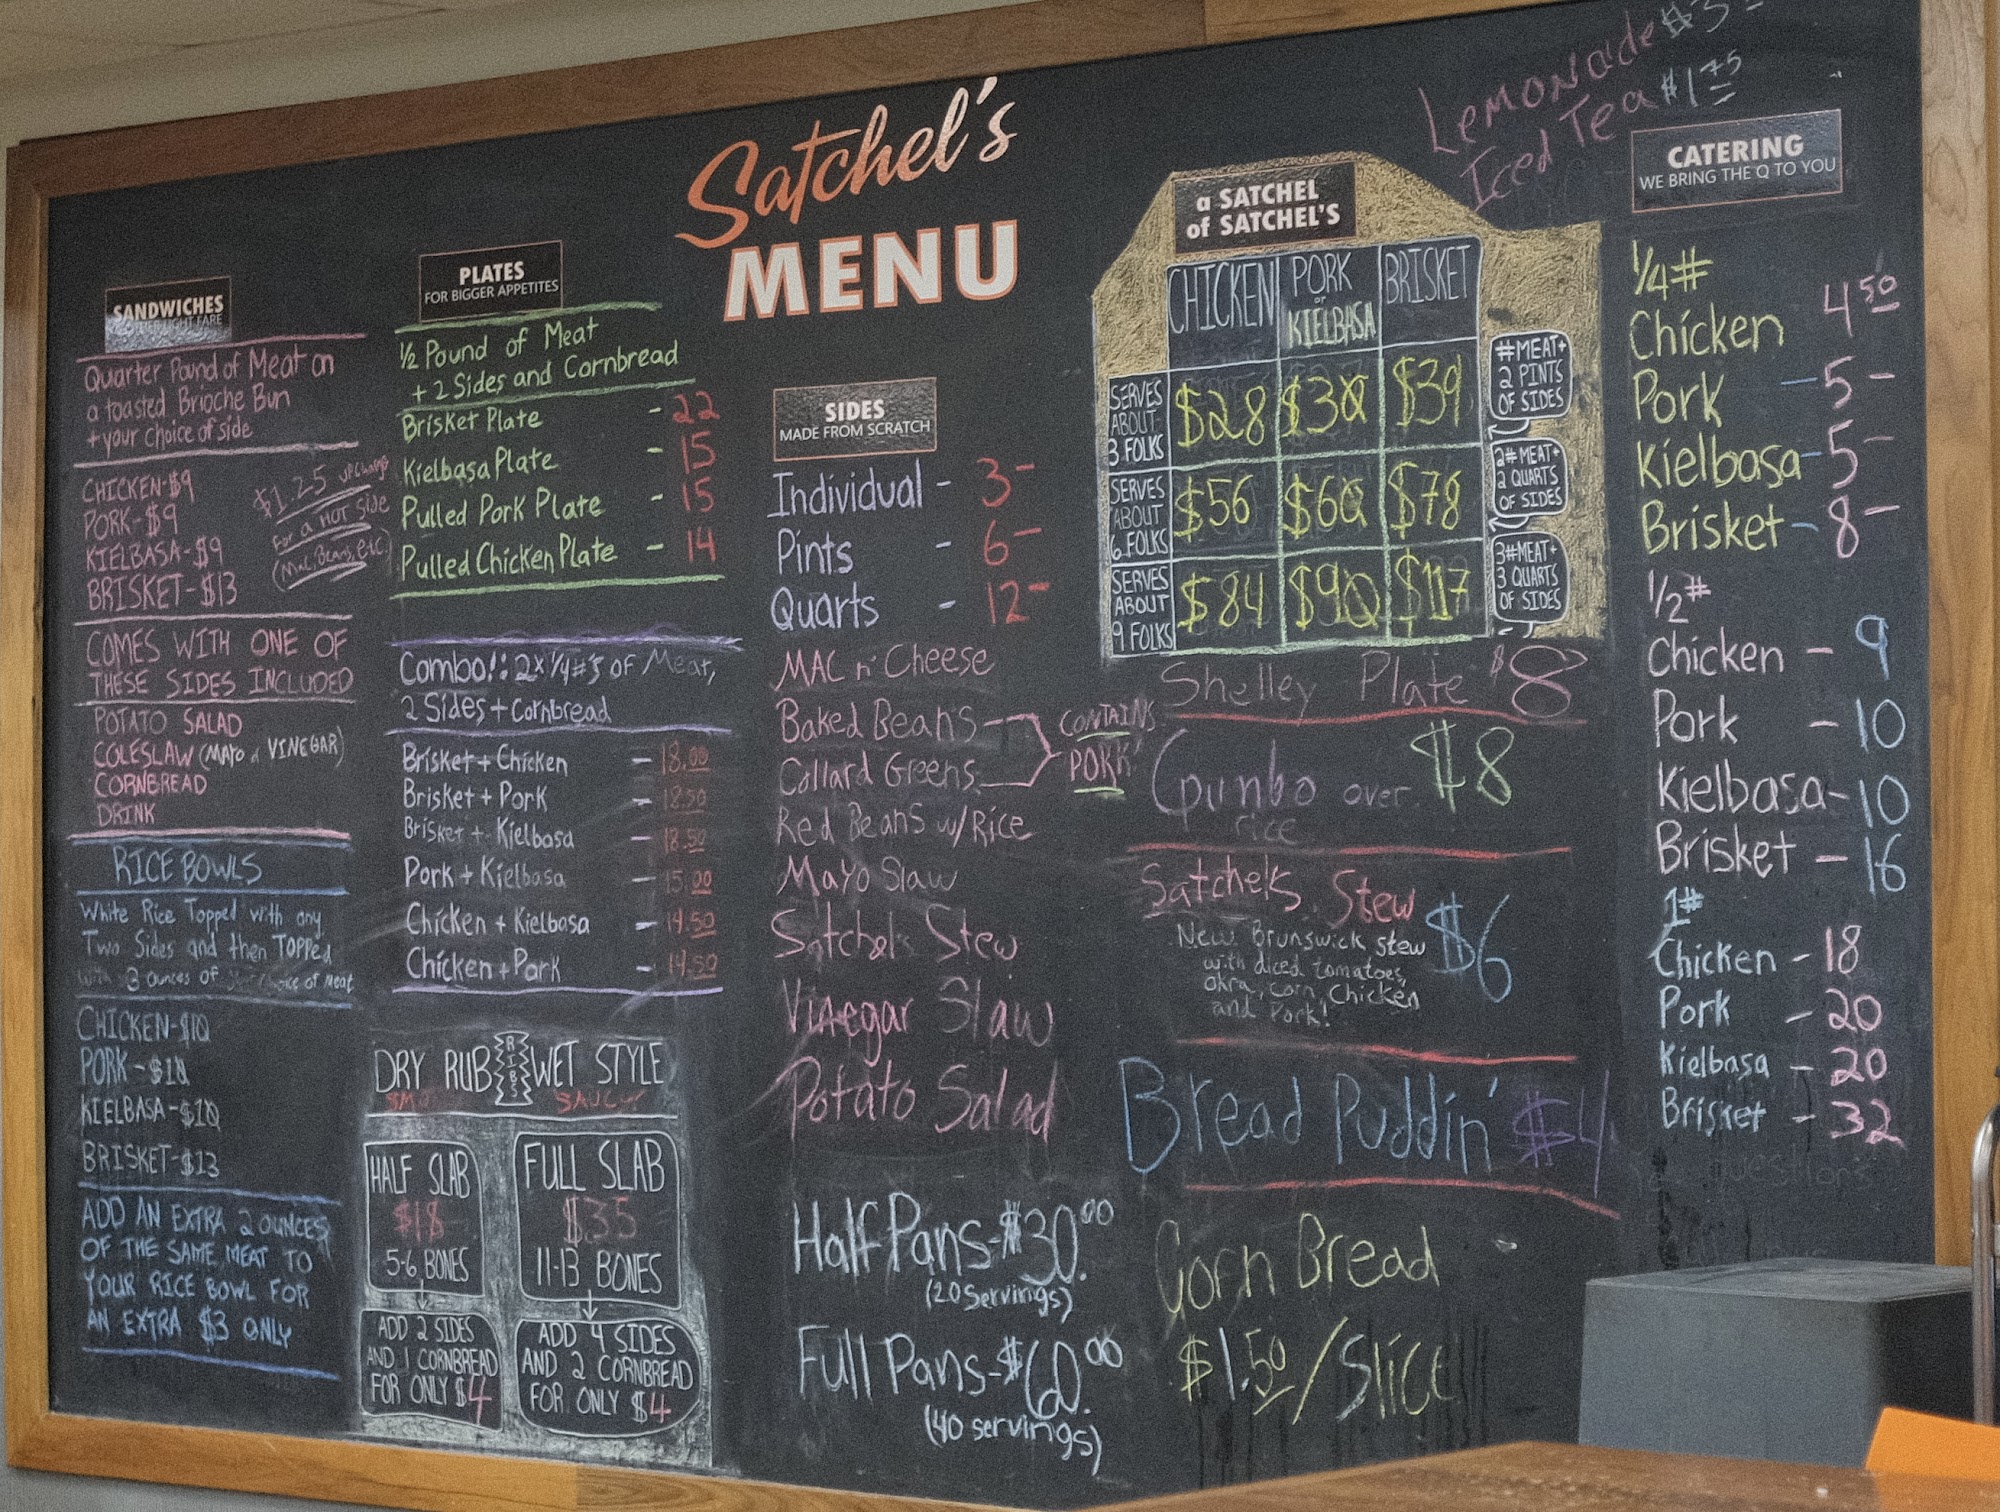 Satchel's
MENU
SANDWICHES
Quarter Pound of Meat on
a toasted Brioche Bun
+ your choice of side
CHICKEN-$9
PORK-$9
KIELBASA-$9
BRISKET-$13
$1.25 upcharge
for a HOT Side
(Mac, Beans, etc.)
COMES WITH ONE OF
THESE SIDES INCLUDED
POTATO SALAD
COLESLAW (MAYO & VINEGAR)
CORNBREAD
DRINK
RICE BOWLS
White Rice Topped with any
Two Sides and then TOPPed
with 3 ounces of choice of meat
CHICKEN-$10
PORK-$10
KIELBASA-$10
BRISKET-$13
ADD AN EXTRA 2 OUNCES
OF THE SAME MEAT TO
YOUR RICE BOWL FOR
AN EXTRA $3 ONLY
PLATES
FOR BIGGER APPETITES
1/2 Pound of Meat
+ 2 Sides and Cornbread
Brisket Plate - 22
Kielbasa Plate - 15
Pulled Pork Plate - 15
Pulled Chicken Plate - 14
Combo!: 2x 1/4#'s of Meat,
2 Sides + Cornbread
Brisket + Chicken - 18.00
Brisket + Pork - 18.50
Brisket + Kielbasa - 18.50
Pork + Kielbasa - 15.00
Chicken + Kielbasa - 14.50
Chicken + Pork - 14.50
DRY RUB RIBS WET STYLE
SAUCY
HALF SLAB
$18
5-6 BONES
ADD 2 SIDES
AND 1 CORNBREAD
FOR ONLY $4
FULL SLAB
$35
11-13 BONES
ADD 4 SIDES
AND 2 CORNBREAD
FOR ONLY $4
SIDES
MADE FROM SCRATCH
Individual - 3-
Pints - 6-
Quarts - 12-
MAC n' Cheese
Baked Beans
Collard Greens
CONTAINS
PORK
Red Beans w/ Rice
Mayo Slaw
Satchel's Stew
Vinegar Slaw
Potato Salad
Half Pans-$30.00
(20 Servings)
Full Pans-$60.00
(40 servings)
Lemonade $3-
Iced Tea $1.75
a SATCHEL
of SATCHEL'S
CHICKEN PORK or KIELBASA BRISKET
SERVES ABOUT 3 FOLKS $28 $30 $39 #MEAT+ 2 PINTS OF SIDES
SERVES ABOUT 6 FOLKS $56 $60 $78 2#MEAT+ 2 QUARTS OF SIDES
SERVES ABOUT 9 FOLKS $84 $90 $117 3#MEAT+ 3 QUARTS OF SIDES
Shelley Plate $8
Gumbo over $8
rice
Satchel's Stew $6
New Brunswick stew
with diced tomatoes,
okra, corn, Chicken
and Pork!
Bread Puddin' $4
Corn Bread
$1.50/Slice
CATERING
WE BRING THE Q TO YOU
1/4#
Chicken 4.50
Pork - 5-
Kielbasa - 5-
Brisket - 8-
1/2#
Chicken - 9
Pork - 10
Kielbasa - 10
Brisket - 16
1#
Chicken - 18
Pork - 20
Kielbasa - 20
Brisket - 32
questions